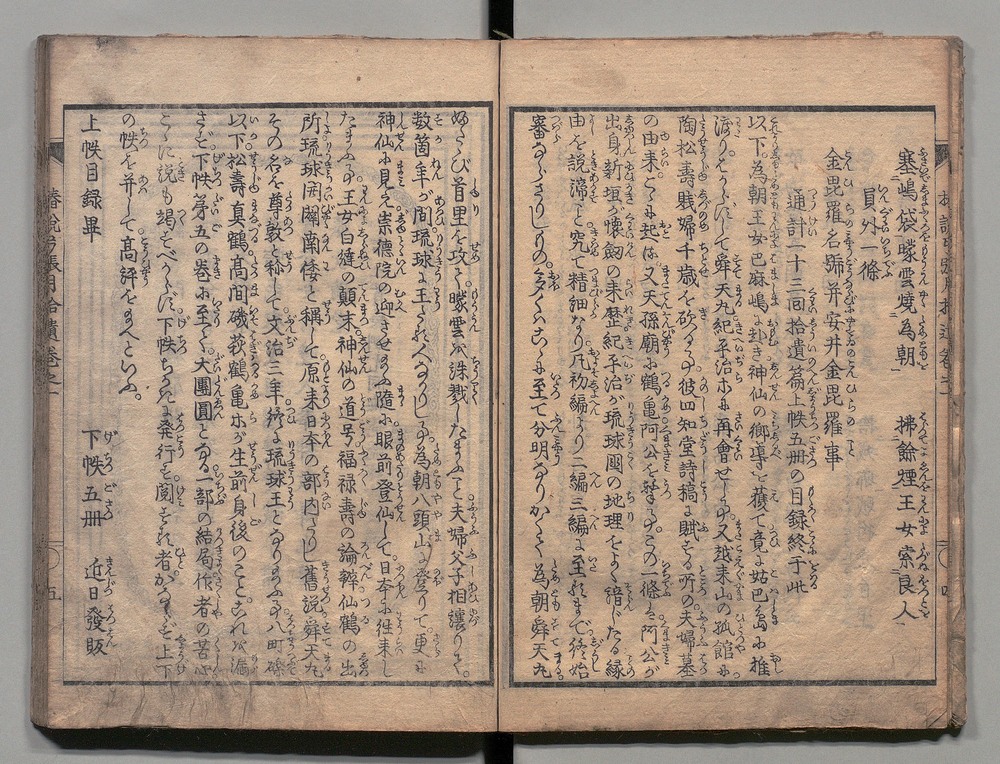 塞嶋袋曚雲燒為朝 拂餘煙王女索良人
員外一條
金毘羅名號并安井金毘羅事
通計一十三回拾遺篇上帙五冊の目録終于此
以下為朝王女巴麻嶋に赴き神仙の郷導を獲て竟に姑巴島に推
渡りて舜天丸紀平治ホに再會せし事又越来山の孤館に
陶松壽賤婦千歳を砍る事彼四知堂詩稿に賦する所の夫婦墓
の由来こゝに起る又天孫廟に鶴亀阿公を撃事この一條に阿公が
出身新垣が懐劔の来歴紀平治が琉球國の地理をよく諳じたる縁
由を説諦と究て精細なり凡初編より二編三編に至るまで終始
審ならざりしもの多くこゝに至て分明なりかくて為朝舜天丸
ふたゝび首里を攻て曚雲を誅戮したまふこと夫婦父子相讓りて
数箇年が間琉球に王たる人なかりし事為朝八頭山に登りて更に
神仙に見え崇德院の迎させ給ふ隨に眼前登仙して日本に徃来し
たまふ事王女白縫の顛末神仙の道号福禄壽の論辨仙鶴の出
所琉球開闢南倭と稱して原来日本の部内なりし舊説舜天丸
その名を尊敦と称して文治三年終に琉球王となり給ふ事八町礫
以下松壽真鶴高間礒萩鶴亀ホが生前身後のことこれを漏
さず下帙第五の巻に至りて大團圓となる一部の結局作者の苦心
こゝに説も竭すべからず下帙ちかきに発行を閲する者かならず上下
の帙を并して高評を給へといふ
上帙目録畢 下帙五册 近日發販
椿説弓張月拾遺巻之一
五